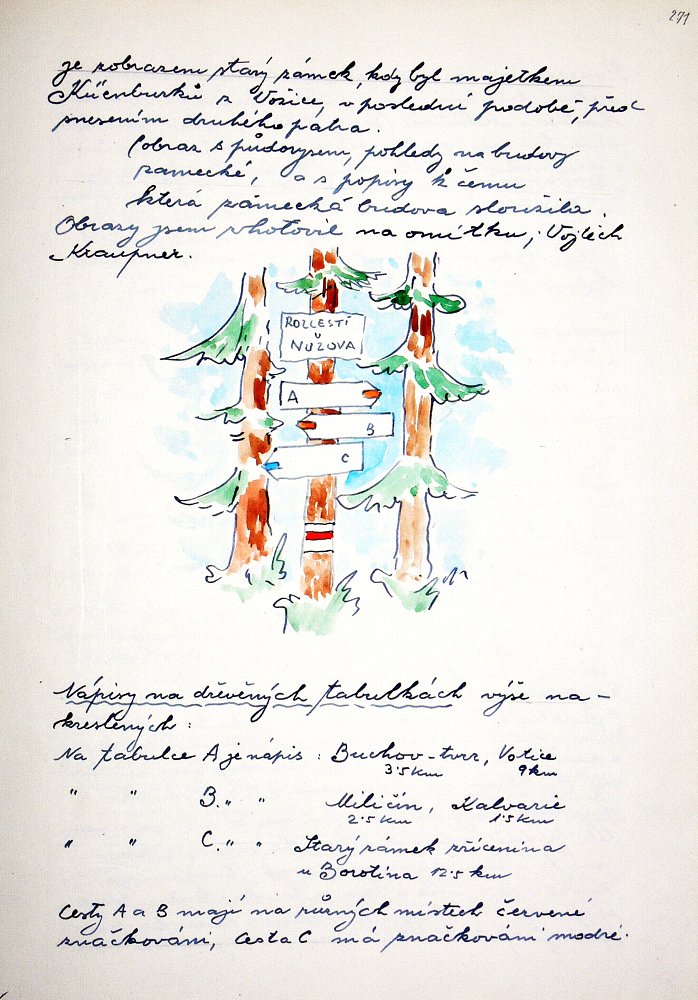 271
je zobrazen starý zámek, kdy byl majetkem
Küenburků z Vožice, v poslední podobě, před
snesením druhého patra.
(obraz s půdorysem, pohledy na budovy
zámecké, a s popisy k čemu
která zámecká budova sloužila.
Obrazy jsem zhotovil na omítku, Vojtěch
Kraupner.
ROZCESTÍ
U
NUZOVA
A
B
C
Nápisy na dřevěných tabulkách výše na-
kreslených:
Na tabulce A je nápis: Buchov-tvrz, Votice
3.5 km 9 km
" " B. " " Miličín, Kalvarie
2.5 km 1.5 km
" " C. " " Starý zámek zřícenina
u Borotína 12.5 km
Cesty A a B mají na různých místech červené
značkování, cesta C má značkování modré.